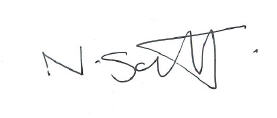 N. Scott.